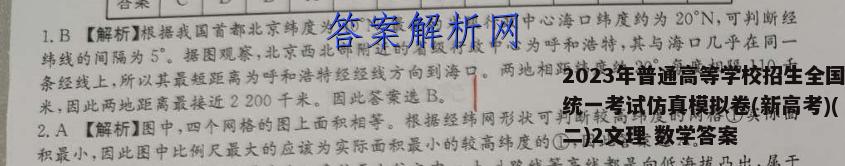 答案
1. B 【解析】根据我国首都北京纬度为 中心海口纬度约为 20°N,可判断经
答案解析网
纬线的间隔为 5°。据图观察,北京西北部附近的省级行政中心为呼和浩特,其与海口几乎在同一
条经线上,所以其最短距离为呼和浩特经经线方向到海口。两地相距纬度约
2023年普通高等学校招生全国
统一考试仿真模拟卷(新高考)(
二)2文理 数学答案
米,因此两地距离最接近 2 200 千米。因此答案选 B。
2. A 【解析】图中,四个网格的图上面积相等。根据经纬网形状可判断较高纬度的
积最小,因此图中比例尺最大的应该为实际面积最小的较高纬度的①